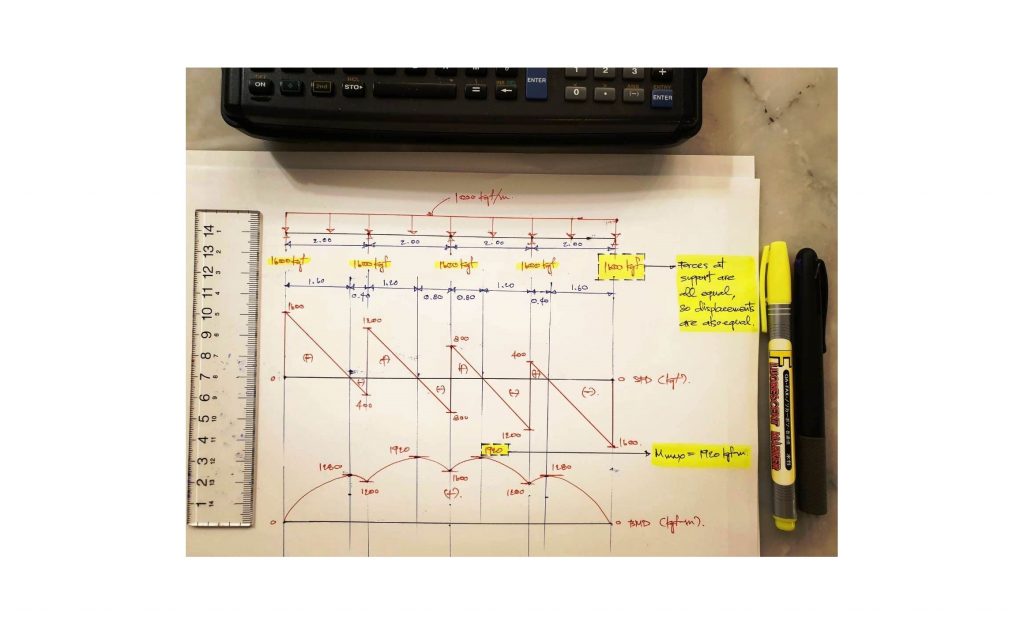 ON
2nd
STO▸
=
ENTER
1 2 3 +
0 . (−)
ENTRY
ENTER
1000 kgf/m.
2.00 2.00 2.00 2.00
1600 kgf 1600 kgf 1600 kgf 1600 kgf 1600 kgf
Forces at
support are
all equal,
so displacements
are also equal.
1.60 0.40 1.20 0.80 0.80 1.20 0.40 1.60
1600
1200
800
400
(+) (−) (+) (−) (+) (−) (+) (−)
0
0 SFD (kgf).
400
800
1200
1600.
1280
1920
1920
1280
Mmax = 1920 kgf-m.
1200
1600
1200
(+)
0
0 BMD (kgf-m).
14
13
12
11
10
9
8
7
6
5
4
3
2
1
FLUORESCENT MARKER